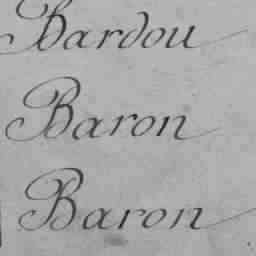 Bardou
Baron
Baron